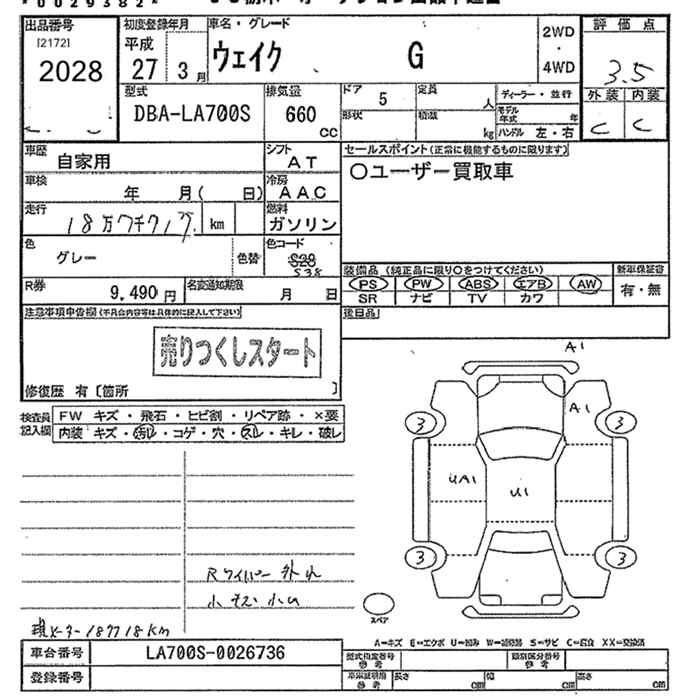 出品番号
[2172]
2028
初度登録年月
平成
27 3月
車名・グレード
ウェイク G
2WD
・
4WD
評価点
3.5
外装 内装
C C
型式
DBA-LA700S
排気量
660
CC
ドア 5
定員 人
形状
積載 kg
ディーラー・並行
モデル年式 年
ハンドル 左・右
車歴
自家用
シフト
AT
車検
年 月( 日)
冷房
AAC
走行
18万7千7百 km
燃料
ガソリン
色
グレー
色替
色コード
S28
S38
R券
9,490円
名変通知期限
月 日
セールスポイント(正常に機能するものに限ります)
○ユーザー買取車
装備品(純正品に限り○をつけてください)
PS PW ABS エアB AW
SR ナビ TV カワ
新車保証書
有・無
後日品
注意事項申告欄(不具合内容等は具体的に記入して下さい)
売りつくしスタート
修復歴 有〔箇所 〕
検査員記入欄
FW キズ・飛石・ヒビ割・リペア跡・×要
内装 キズ・汚れ・コゲ・穴・スレ・キレ・破レ
A1
A1
3 3
UA1
U1
3 3
スペア
Rワイパー外れ
現メーター187718KM
A=キズ E=エクボ U=凹み W=補修跡 S=サビ C=腐食 XX=交換済
車台番号
LA700S-0026736
登録番号
型式指定番号
参考
類別区分番号
参考
車庫証明用
参考
長さ cm
幅 cm
高さ cm